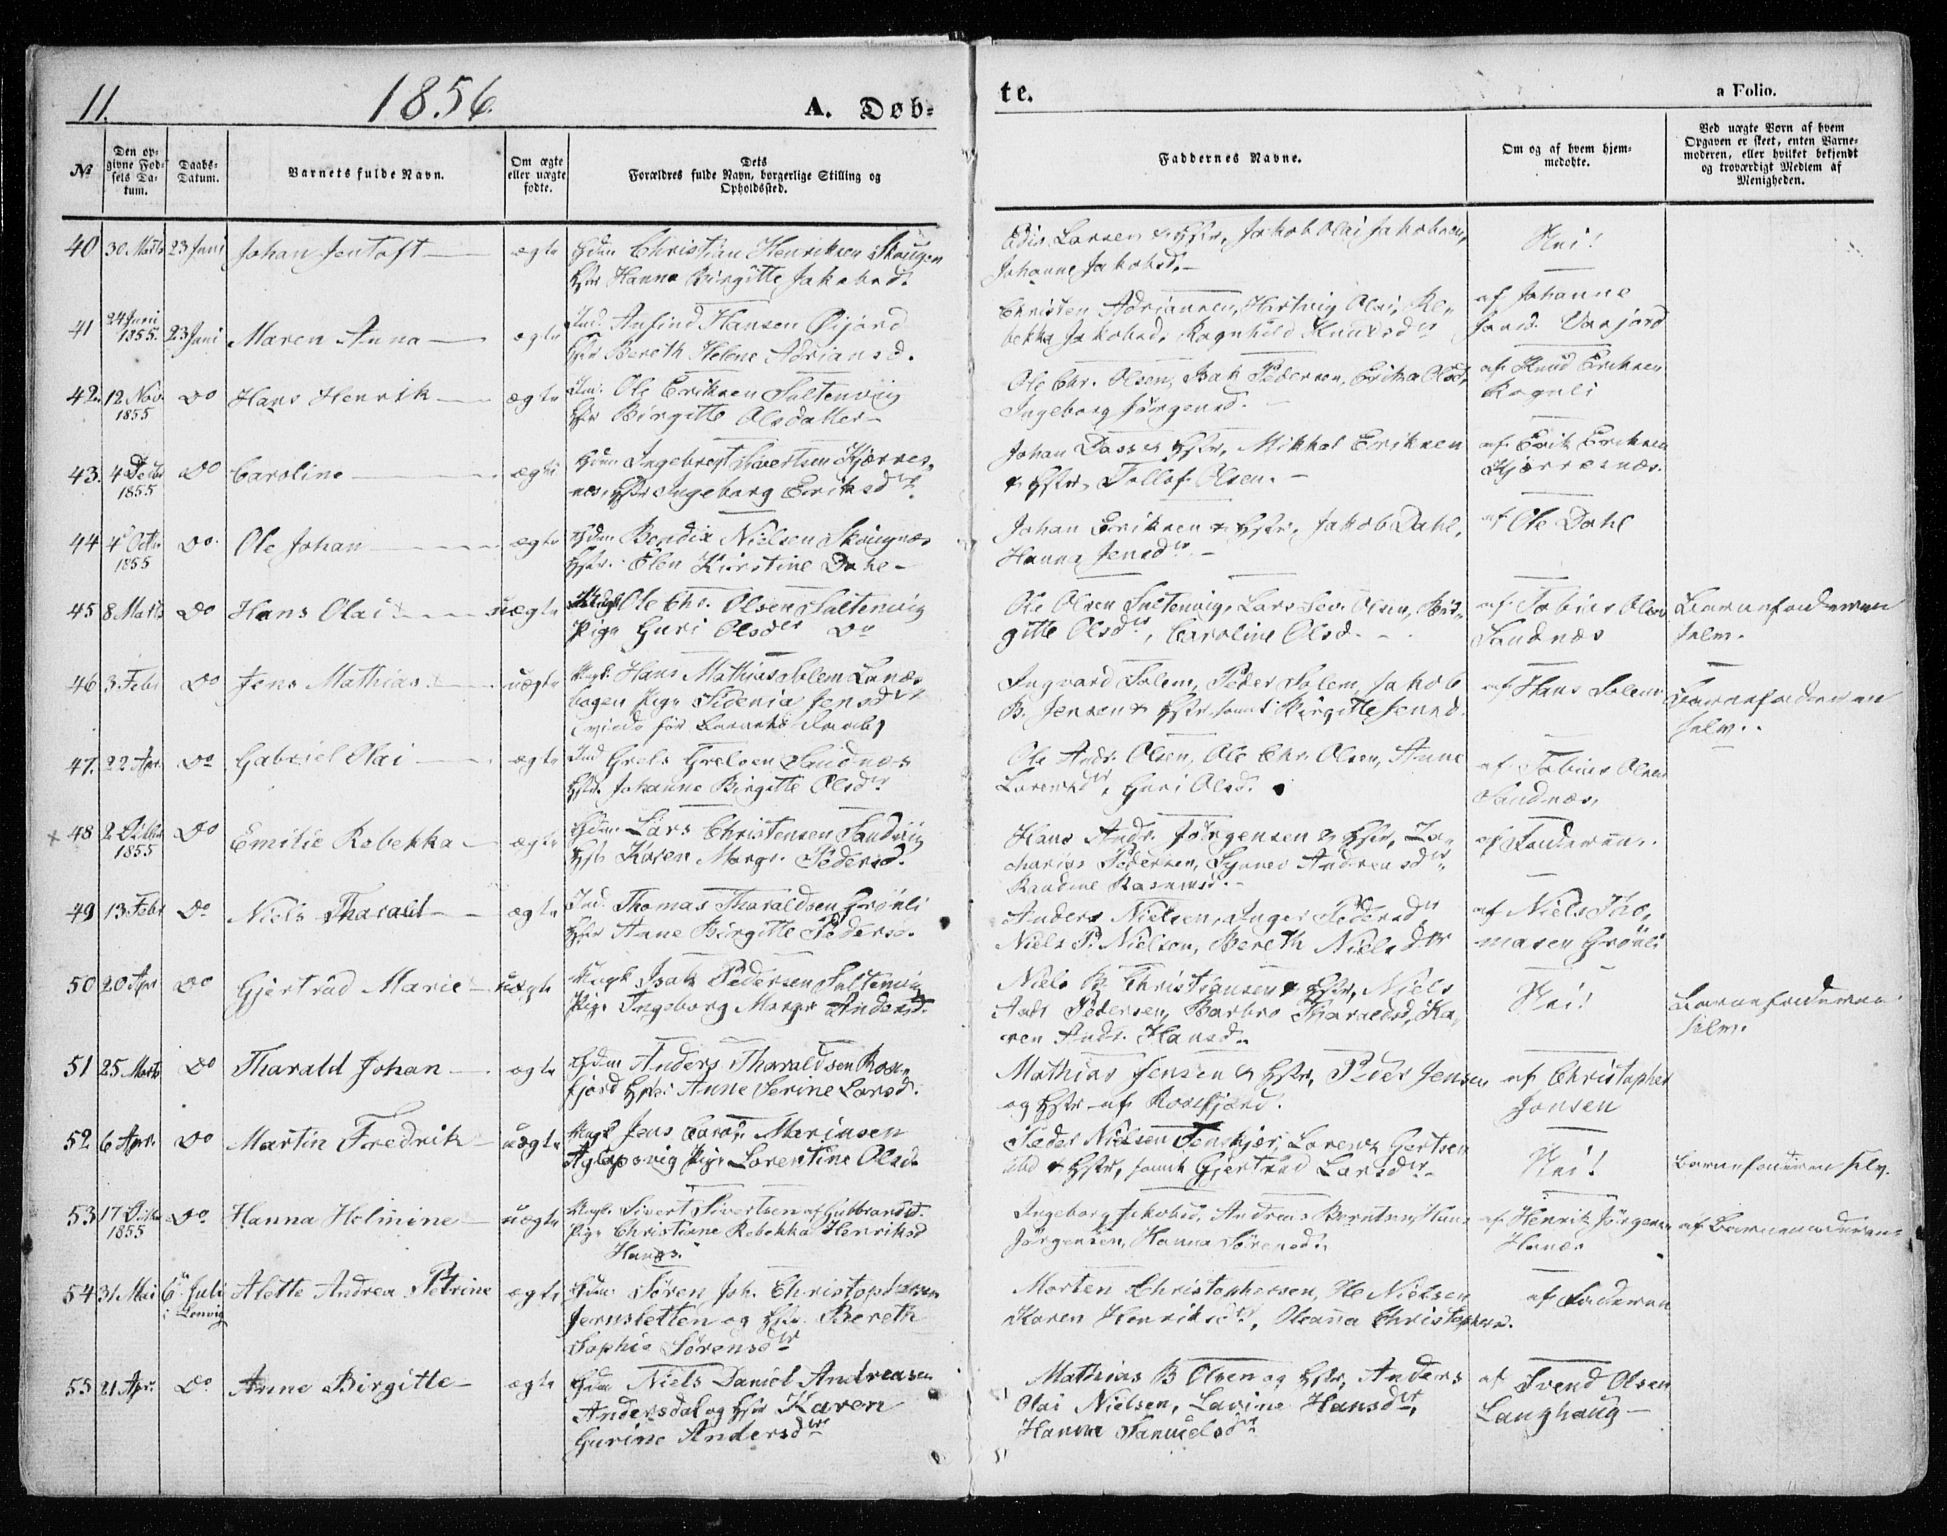 11.
1856.
A. Døb-
te.
a Folio.
№
Den op-
givne Fød-
sels Da-
tum.
Daabs-
Datum.
Barnets fulde Navn.
Om ægte
eller uægte
fødte.
Dets
Forældres fulde Navn, borgerlige Stilling og
Opholdssted.
Faddernes Navne.
Om og af hvem hjem-
medøbte.
Ved uægte Børn af hvem
Opgaven er skeet, enten Barne-
moderen, eller hvilket bekjendt
og troværdigt Medlem af
Menigheden.
40 30. Marts 23 Juni Johan Jentoft ægte
Christian Henriksen Skougen
Hanna Birgitte Jakobsd.
Larsen & Hstr, Jakob Olai Jakobsen,
Johanne Jakobsd.
Nei!
41 24 Juni 1855. 23 Juni Maren Anna ægte
Ind. Anfind Hansen Øijord
Bereth Helene Adriansd.
Christen Adriansen, Hertvig Olai, Re-
bekka Jakobsd, Ragnhild Knudsdr
af Johanne
42. 12 Nov. 1855 Do Hans Henrik ægte
Ind. Ole Eriksen Saltenvig
Birgitte Olsdatter
Ole Chr. Olsen, Isak Pedersen, Erika Olsd,
Ingeborg Jørgensd.
af Knud Eriksen
Rognli
43. 4 1855 Do Caroline ægte
Ingebregt Sivertsen Kjerres-
næs, Hstr Ingeborg Eriksdr
Johan Dass & Hstr, Mikkal Eriksen
& Hstr, Tollef Olsen.
af Erik Eriksen
Kjerresnæs.
44 4 Octr 1855 Do. Ole Johan ægte
Bendix Nielsen Skougnæs
Hstr. Elen Kirstine Dahl
Johan Eriksen & Hstr, Jakob Dahl,
Hanna Jensdr
af Ole Dahl
45 8 Marts Do Hans Olai uægte
Ole Chr. Olsen Saltenvig
Pige Guri Olsdr Do
Ole Olsen Saltenvig, Lars Sev. Olsen, Bir-
gitte Olsdr, Caroline Olsd.
af Tobias Olsen
Sandnæs
Barnefaderen
selv.
46 3 Febr Do Jens Mathias uægte
Ungk. Hans Mathias Solem Lanæs-
bogen Pige Sidenia Jensdr
(viede før Barnets Daab)
Ingvard Solem, Peder Solem, Jakob
B. Jensen & Hstr, samt Birgitte Jensd.
af Hans Solem
Barnefaderen
selv.
47. 22 Apr. Do Gabriel Olai ægte
Ind Grels Grelsen Sandnæs
Hstr Johanne Birgitte Olsdr
Ole Andr. Olsen, Ole Chr. Olsen, Anne
Larensdr, Guri Olsd.
af Tobias Olsen
Sandnæs,
x 48 2 1855 Do Emilie Rebekka ægte
Lars Christensen Sandvig
Karen Margr. Pedersd.
Hans Andr. Jørgensen & Hstr, Za-
charias Pedersen, Synnev Andreasdr
Rasmusd.
af Faderen.
49 13 Febr Do Niels Tharald ægte
Ind. Thomas Tharaldsen Grønli
Anne Birgitte Pedersd.
Anders Nielsen, Inger Pedersdr
Niels P. Nielsen, Bereth Nielsdr
af Niels Tho-
masen Grønli
50 20 Apr Do Gjertrud Marie uægte
Ungk Isak Pedersen Saltenvig
Pige Ingeborg Margr Andersd.
Niels B. Christiansen & Hstr, Niels
Andr Pedersen, Barbro Tharaldsd, Ka-
ren Andr. Hansd.
Nei!
Barnefaderen
selv.
51 25 Marts Do Tharald Johan ægte
Anders Tharaldsen Ros-
fjord Hstr: Anne Serine Larsd.
Mathias Jensen & Hstr, Peder Jensen
og Hstr af Rossfjord.
af Christopher
Jensen
52. 6 Apr. Do Martin Fredrik uægte
Ungk Jens
Aglapsvig Pige Lorentine Olsd.
Peder Nielsen Tenskjer, Lorentz Gertsen
ibd & Hstr, samt Gjertrud Larsdr
Nei!
Barnefaderen selv.
53 17 1855 Do. Hanna Helmine uægte
Ungk. Sivert Sivertsen af Gulbrandsd.
Pige Christiane Rebekka Henriksd
Hanæs.
Ingeborg Jakobsd, Andreas Berntsen, Hans
Jørgensen, Hanna Sørensd.
af Henrik Jørgensen
Hanæs
af Barnemoderen
54 31 Mai 6 Juli i Lenvig Alette Andrea Petrine ægte
Søren Joh. Christophersen
Jernsletten og Hstr Bereth
Sophie Sørensdr
Morten Christophersen, He Nielsen
Karen Henriksdr, Oleanna Christophers.
af Faderen
55 21 Apr. Do Anne Birgitte ægte
Niels Daniel Andreasen
Andersdal og Hstr Karen
Gurine Andersdr
Mathias B Olsen og Hstr, Anders
Olai Nielsen, Lavine Hansdr,
Hanna Samuelsdr
af Svend Olsen
Langhaug